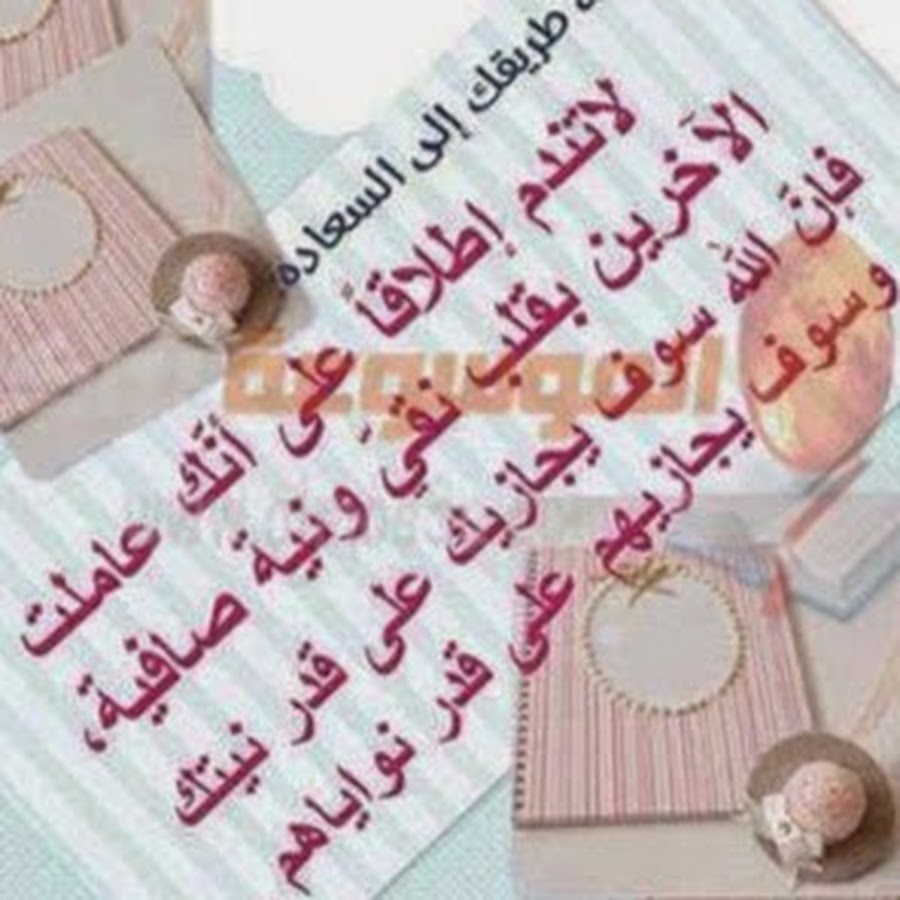 طريقك إلى السعاده
لاتندم إطلاقاً على أنَك عاملت
الآخرين بقلب نقيَ ونية صافية،
فإنَ الله سوف يجازيك على قدر نيتك
وسوف يجازيهم على قدر نواياهم
الموسوعة